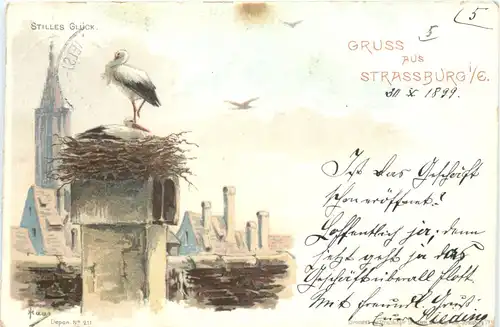 STILLES GLÜCK.
5
5
GRUSS
AUS
STRASSBURG i/E.
30 X 1899.
Ist das Geschäft
schon eröffnet?
Hoffentlich ja, denn
jetzt geht ja das
Geschäft überall flott.
Mit freundl. Gruß
Depon. No 211